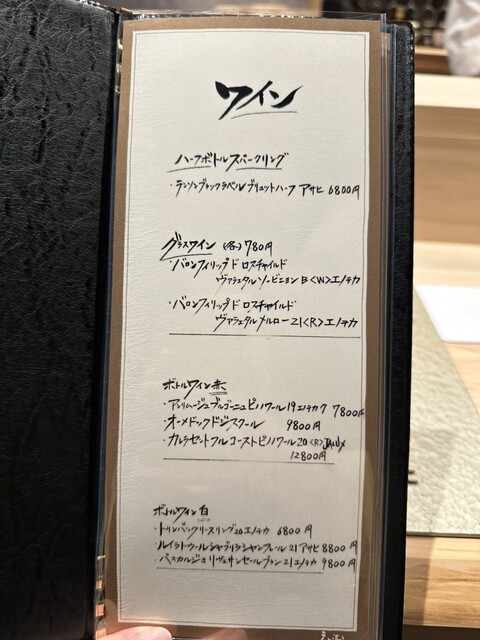 ワイン
ハーフボトルスパークリング
・ランソンブラックラベルブリュットハーフ アサヒ 6800円
グラスワイン (各) 780円
・バロンフィリップ ド ロスチャイルド
ヴァラエタル ソービニョン B <W> エノテカ
・バロンフィリップ ド ロスチャイルド
ヴァラエタル メルロー 21 <R> エノテカ
ボトルワイン 赤
ブルゴーニュ ピノノワール 19 エノテカ 7800円
・オーメドックドジスクール 9800円
・カレラセントラルコーストピノノワール 20 <R> JALUX
12800円
ボトルワイン 白
・トリンバックリースリング 20 エノテカ 6800円
21 アサヒ 8800円
・パスカルジョリヴェサンセールブラン 21 エノテカ 9800円